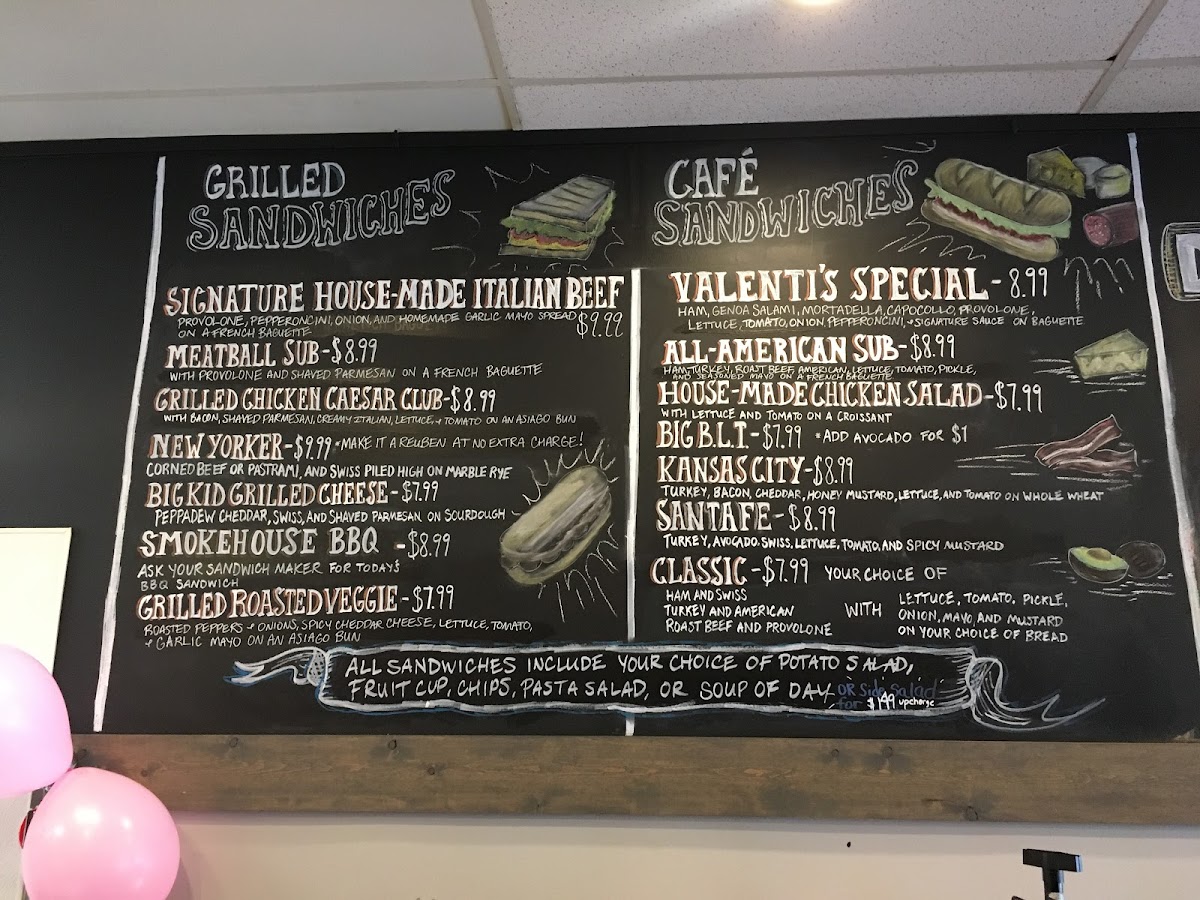 GRILLED
SANDWICHES
SIGNATURE HOUSE-MADE ITALIAN BEEF
PROVOLONE, PEPPERONCINI, ONION, AND HOMEMADE GARLIC MAYO SPREAD $9.99
ON A FRENCH BAGUETTE
MEATBALL SUB-$8.99
WITH PROVOLONE AND SHAVED PARMESAN ON A FRENCH BAGUETTE
GRILLED CHICKEN CAESAR CLUB-$8.99
WITH BACON, SHAVED PARMESAN, CREAMY ITALIAN, LETTUCE, + TOMATO ON AN ASIAGO BUN
NEW YORKER-$9.99 *MAKE IT A REUBEN AT NO EXTRA CHARGE!
CORNED BEEF OR PASTRAMI, AND SWISS PILED HIGH ON MARBLE RYE
BIG KID GRILLED CHEESE-$7.99
PEPPADEW CHEDDAR, SWISS, AND SHAVED PARMESAN ON SOURDOUGH
SMOKEHOUSE BBQ -$8.99
ASK YOUR SANDWICH MAKER FOR TODAY'S
BBQ SANDWICH
GRILLED ROASTED VEGGIE-$7.99
ROASTED PEPPERS + ONIONS, SPICY CHEDDAR CHEESE, LETTUCE, TOMATO,
+ GARLIC MAYO ON AN ASIAGO BUN
CAFÉ
SANDWICHES
VALENTI'S SPECIAL-8.99
HAM, GENOA SALAMI, MORTADELLA, CAPOCOLLO, PROVOLONE,
LETTUCE, TOMATO, ONION, PEPPERONCINI, + SIGNATURE SAUCE ON BAGUETTE
ALL-AMERICAN SUB-$8.99
HAM, TURKEY, ROAST BEEF, AMERICAN, LETTUCE, TOMATO, PICKLE,
AND SEASONED MAYO ON A FRENCH BAGUETTE
HOUSE-MADE CHICKEN SALAD-$7.99
WITH LETTUCE AND TOMATO ON A CROISSANT
BIG B.L.T.-$7.99 *ADD AVOCADO FOR $1
KANSAS CITY-$8.99
TURKEY, BACON, CHEDDAR, HONEY MUSTARD, LETTUCE, AND TOMATO ON WHOLE WHEAT
SANTA FE-$8.99
TURKEY, AVOCADO, SWISS, LETTUCE, TOMATO, AND SPICY MUSTARD
CLASSIC-$7.99 YOUR CHOICE OF
HAM AND SWISS
TURKEY AND AMERICAN
ROAST BEEF AND PROVOLONE
WITH
LETTUCE, TOMATO, PICKLE,
ONION, MAYO, AND MUSTARD
ON YOUR CHOICE OF BREAD
ALL SANDWICHES INCLUDE YOUR CHOICE OF POTATO SALAD,
FRUIT CUP, CHIPS, PASTA SALAD, OR SOUP OF DAY OR Side Salad
for $1.99 upcharge